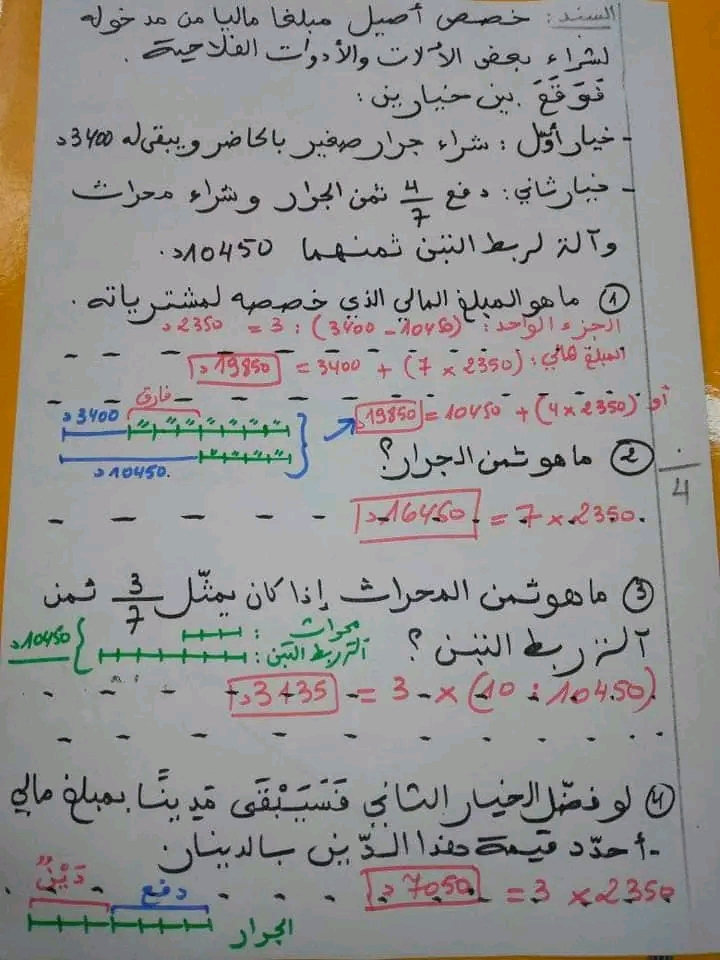 السند: خصص أصيل مبلغا ماليا من مدخوله
لشراء بعض الآلات والأدوات الفلاحية.
فَوَقَعَ بين خيارين:
- خيار أوّل: شراء جرار صغير بالحاضر ويبقى له 3400د
- خيار ثاني: دفع 4/7 ثمن الجرار وشراء محراث
وآلة لربط التبن ثمنهما 10450د.
① ما هو المبلغ المالي الذي خصصه لمشترياته.
الجزء الواحد: (10450 - 3400) : 3 = 2350د
المبلغ هاني: (2350 × 7) + 3400 = 19850د
أو (2350 × 4) + 10450 = 19850د
فارق
3400د
10450د.
② ما هو ثمن الجرار؟
4
2350 × 7 = 16450د
③ ما هو ثمن المحراث إذا كان يمثّل 3/7 ثمن
آلة ربط التبن؟
محراث:
آلة ربط التبن:
10450د
(10450 : 10) × 3 = 3135د
④ لو فضّل الخيار الثاني فَسَيَبْقَى مَدِينًا بمبلغ مالي
- أحدّد قيمة هذا الدّين بالدينار.
2350 × 3 = 7050د
دَيْنٌ
دفع
الجرار